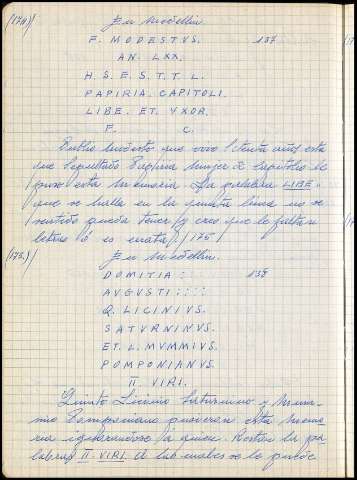 (174)
En Medellin.
P. MODESTVS. 137
AN. LXX.
H. S. E. S. T. T. L.
PAPIRIA. CAPITOLI.
LIBE. ET. VXOR.
F. C.
Publio Modesto que vivo setenta años está
aqui sepultado Papiria muger de Capitolio le
puso esta memoria La palabra LIBE.
que se halla en la quinta linea no se
sentido pueda tener y creo que le faltan
letras ó es errata. /175/
(175) En Medellin.
DOMITIA : : 138
AVGVSTI : : : :
Q. LICINIVS.
SATVRNINVS.
ET. L. MVMMIVS.
POMPONIANVS.
II. VIRI.
Quinto Licinio Saturnino y Mum-
mio Pomponiano pusieron esta memo
ria ignorandose a quien. Restan las pa
labras II. VIRI. de las cuales se le puede